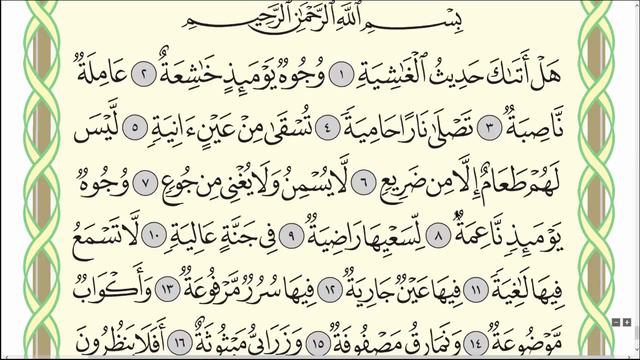 بِسْمِ اللَّهِ الرَّحْمَٰنِ الرَّحِيمِ
هَلْ أَتَىٰكَ حَدِيثُ الْغَٰشِيَةِ ١ وُجُوهٌ يَوْمَئِذٍ خَٰشِعَةٌ ٢ عَامِلَةٌ
نَّاصِبَةٌ ٣ تَصْلَىٰ نَارًا حَامِيَةً ٤ تُسْقَىٰ مِنْ عَيْنٍ ءَانِيَةٍ ٥ لَّيْسَ
لَهُمْ طَعَامٌ إِلَّا مِن ضَرِيعٍ ٦ لَّا يُسْمِنُ وَلَا يُغْنِي مِن جُوعٍ ٧ وُجُوهٌ
يَوْمَئِذٍ نَّاعِمَةٌ ٨ لِّسَعْيِهَا رَاضِيَةٌ ٩ فِي جَنَّةٍ عَالِيَةٍ ١٠ لَّا تَسْمَعُ
فِيهَا لَٰغِيَةً ١١ فِيهَا عَيْنٌ جَارِيَةٌ ١٢ فِيهَا سُرُرٌ مَّرْفُوعَةٌ ١٣ وَأَكْوَابٌ
مَّوْضُوعَةٌ ١٤ وَنَمَارِقُ مَصْفُوفَةٌ ١٥ وَزَرَابِيُّ مَبْثُوثَةٌ ١٦ أَفَلَا يَنظُرُونَ